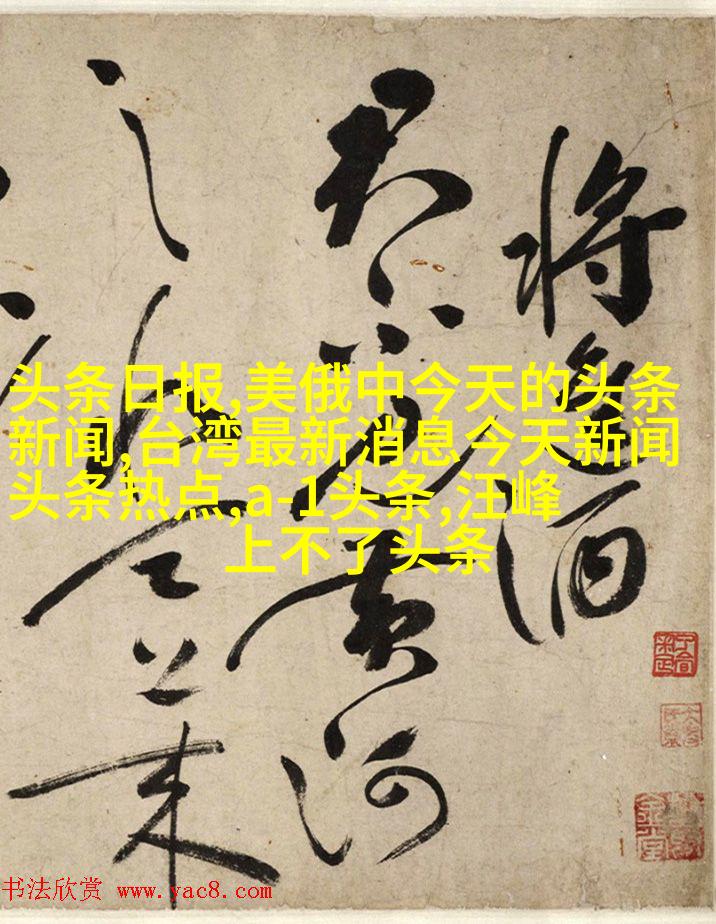 將進酒
君不見黄河
之水天上来
头条日报,美俄中今天的头条
新闻,台湾最新消息今天新闻
头条热点,a-1头条,汪峰
上不了头条
书法欣赏 www.yac8.com